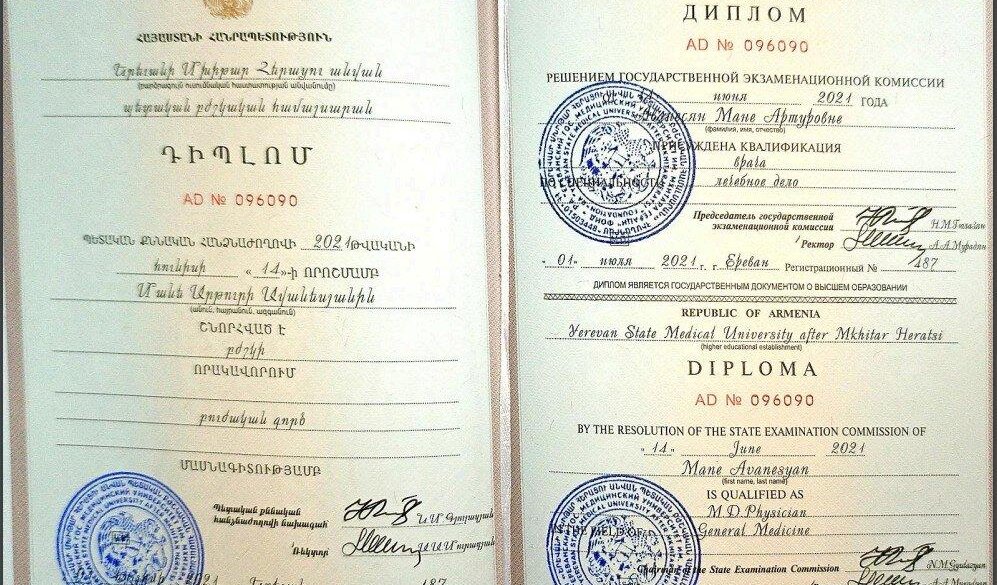 ՀԱՅԱՍՏԱՆԻ ՀԱՆՐԱՊԵՏՈՒԹՅՈՒՆ
Երևանի Մխիթար Հերացու անվան
(բարձրագույն ուսումնական հաստատության անվանումը)
պետական բժշկական համալսարան
ԴԻՊԼՈՄ
AD № 096090
ՊԵՏԱԿԱՆ ՔՆՆԱԿԱՆ ՀԱՆՁՆԱԺՈՂՈՎԻ 2021 ԹՎԱԿԱՆԻ
հունիսի « 14 »-ի ՈՐՈՇՄԱՄԲ
Մանե Արթուրի Ավանեսյանին
(անուն, հայրանուն, ազգանուն)
ՇՆՈՐՀՎԱԾ Է
բժշկի
ՈՐԱԿԱՎՈՐՈՒՄ
բուժական գործ
ՄԱՍՆԱԳԻՏՈՒԹՅԱՄԲ
Պետական քննական
հանձնաժողովի նախագահ
Ռեկտոր
2021 487
ДИПЛОМ
AD № 096090
РЕШЕНИЕМ ГОСУДАРСТВЕННОЙ ЭКЗАМЕНАЦИОННОЙ КОМИССИИ
июня 2021 ГОДА
Аванесян Мане Артуровне
(фамилия, имя, отчество)
ПРИСУЖДЕНА КВАЛИФИКАЦИЯ
врача
ПО СПЕЦИАЛЬНОСТИ лечебное дело
Председатель государственной
экзаменационной комиссии
Ректор А.А.Мурадян
" 01 " июля 2021 г. г. Ереван Регистрационный № 487
ДИПЛОМ ЯВЛЯЕТСЯ ГОСУДАРСТВЕННЫМ ДОКУМЕНТОМ О ВЫСШЕМ ОБРАЗОВАНИИ
REPUBLIC OF ARMENIA
Yerevan State Medical University after Mkhitar Heratsi
(higher educational establishment)
DIPLOMA
AD № 096090
BY THE RESOLUTION OF THE STATE EXAMINATION COMMISSION OF
" 14 " June 2021
Mane Avanesyan
(first name, last name)
IS QUALIFIED AS
M.D.Physician
IN THE FIELD OF General Medicine
Chairman of the State Examination Commission